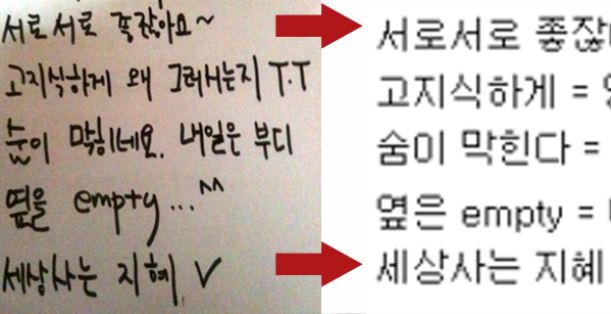 서로서로 좋잖아요~
고지식하게 왜 그러시는지 T.T
숨이 막히네요. 내일은 부디
옆을 empty...^^
세상사는 지혜 V
서로서로 좋잖
고지식하게 =
숨이 막힌다 =
옆은 empty =
세상사는 지혜